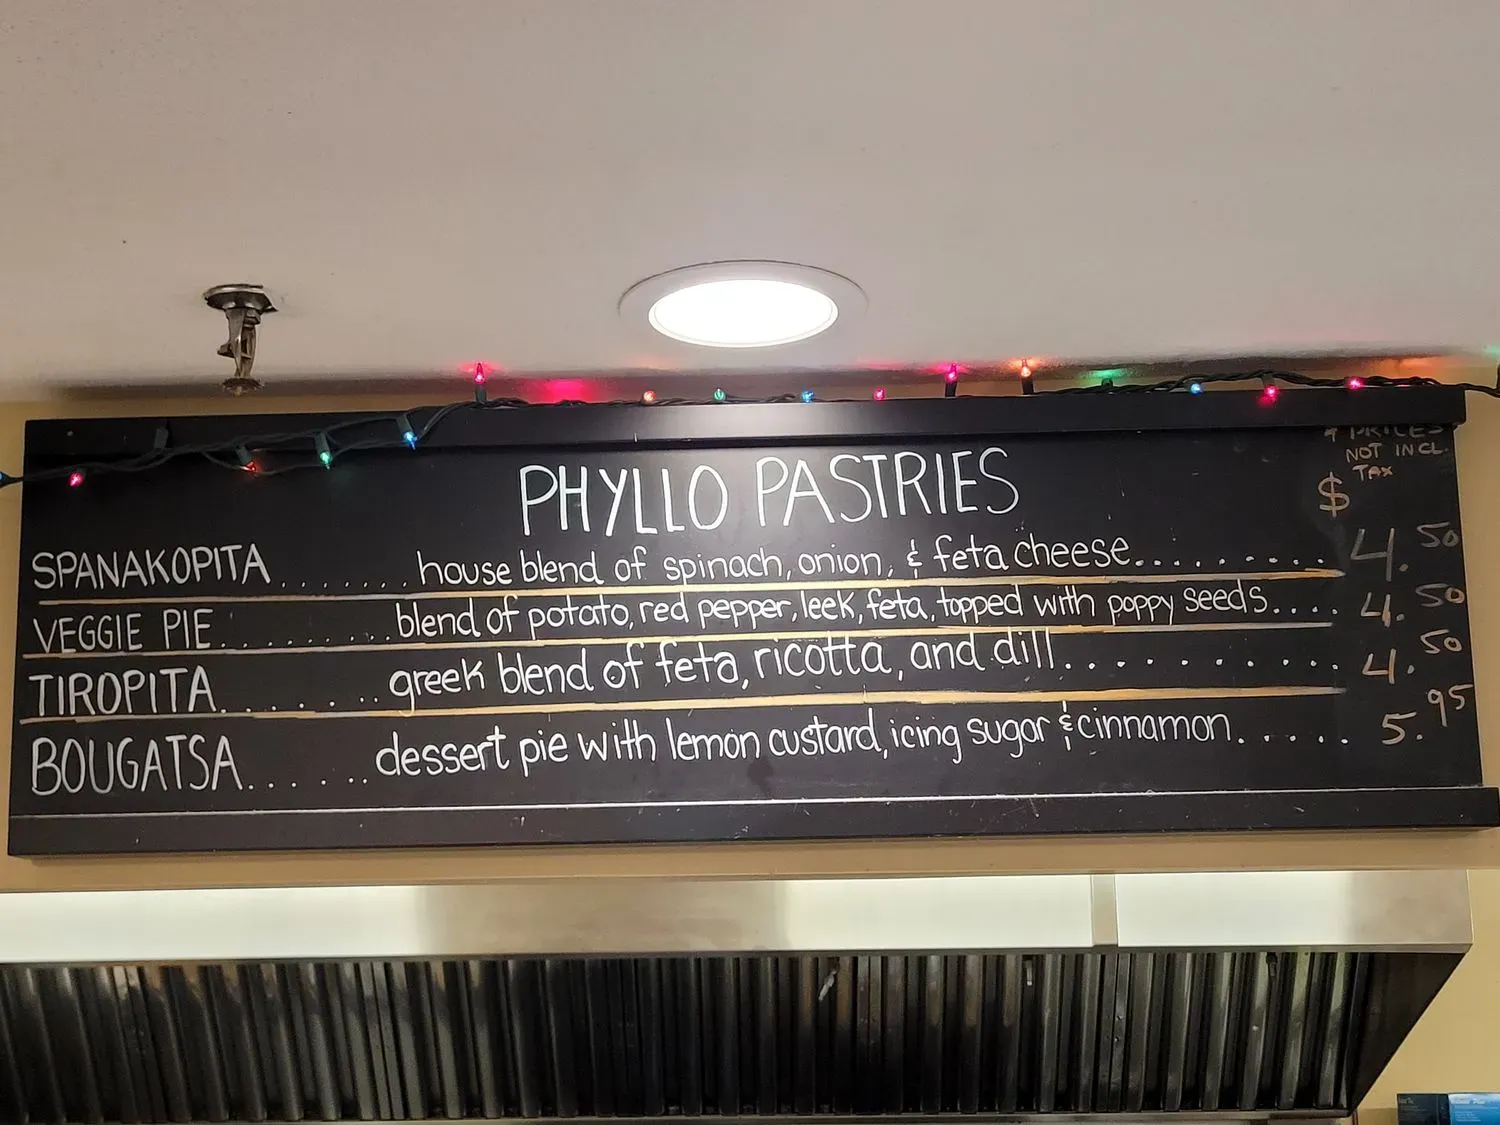 * PRICES
NOT INCL.
TAX
$
PHYLLO PASTRIES
SPANAKOPITA........house blend of spinach, onion, & feta cheese......... 4.50
VEGGIE PIE..........blend of potato, red pepper, leek, feta, topped with poppy seeds.... 4.50
TIROPITA.......greek blend of feta, ricotta, and dill........... 4.50
BOUGATSA......dessert pie with lemon custard, icing sugar & cinnamon...... 5.95